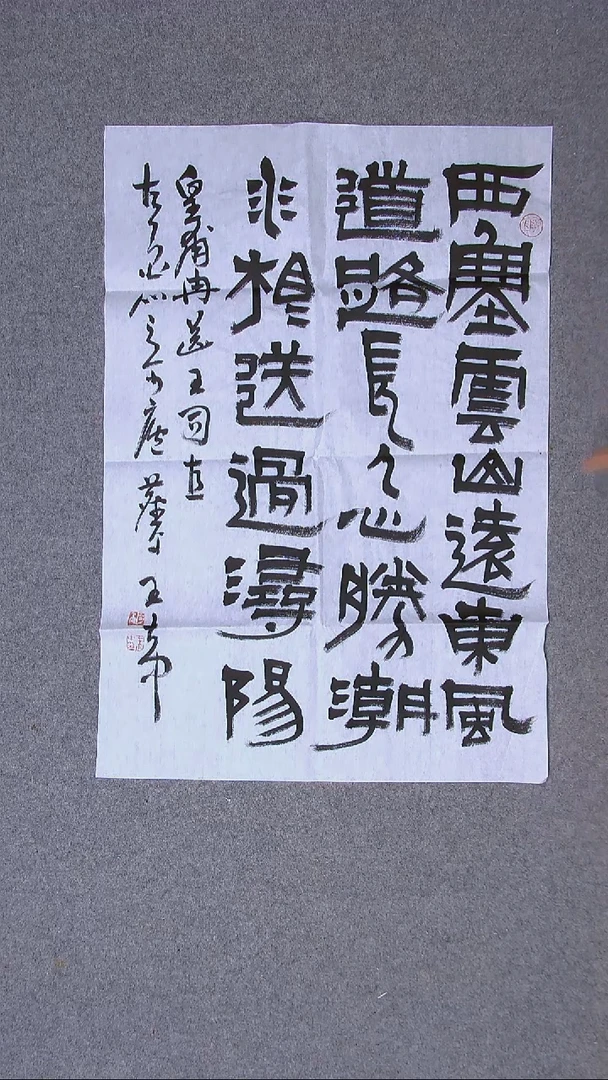 西塞雲山遠東風
道路長人心勝潮
水相送過潯陽
皇甫冉送王司直